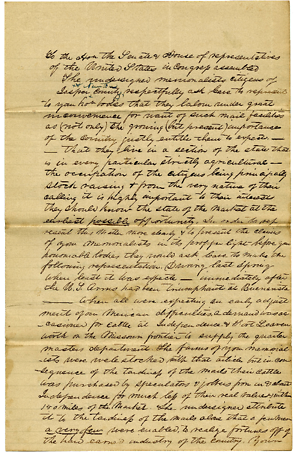 To the Hon the Senate & House of representatives
of the United States in Congress assembled
The undersigned memorialists citizens of
County, respectfully ask leave to represent
to your Hon bodies that they labour under great
inconvenience for want of such mail facilities
as (not only) the growing (but present) importance
of the County justly entitle them to expect —
— that they live in a section of the state that
is in every particular strictly agricultural —
the occupation of the citizens being principally
stock raising & from the very nature of their
calling it is highly important to their interests
they should know the state of the Market at the
earliest possible opportunity. In order to rep
resent this matter more clearly & to present the claims
of your Memorialists in its proper light before your
honourable bodies they would ask leave to make the
following representation. During last Spring
when least it was — immediately after
the U.S Arms had been triumphant at Buena vista
— When all were expecting an early adjust
ment of our Mexican difficulties a demand was
for Cattle at Independence & Fort Leaven
worth on the Missouri frontier to supply the quarter
masters department the farms of your memorial
ists were well stocked with that article but in con
sequence of the tardiness of the mails their cattle
was purchased by speculators & jobbers from
Independence for much less of their real values within
140 miles of the Market. The undersigned attribute
it to the tardiness of the mails alone that
a very few were enabled to realize fortunes off of
the hard earned industry of the Country.